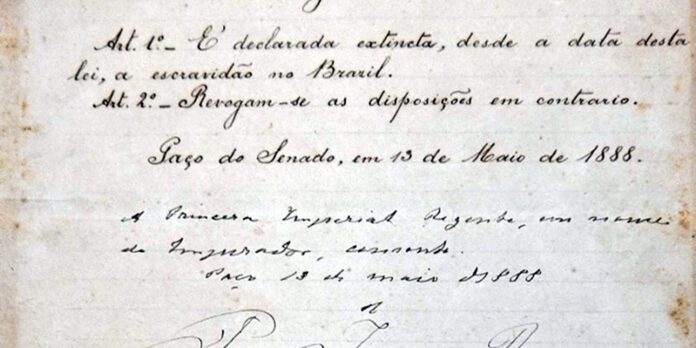 Art. 1º_ É declarada extincta, desde a data desta
lei, a escravidão no Brazil.
Art. 2º_ Revogam-se as disposições em contrario.
Paço do Senado, em 13 de Maio de 1888.
A Princeza Imperial Regente, em nome
do Imperador, consente.
Paço 13 de maio de 1888